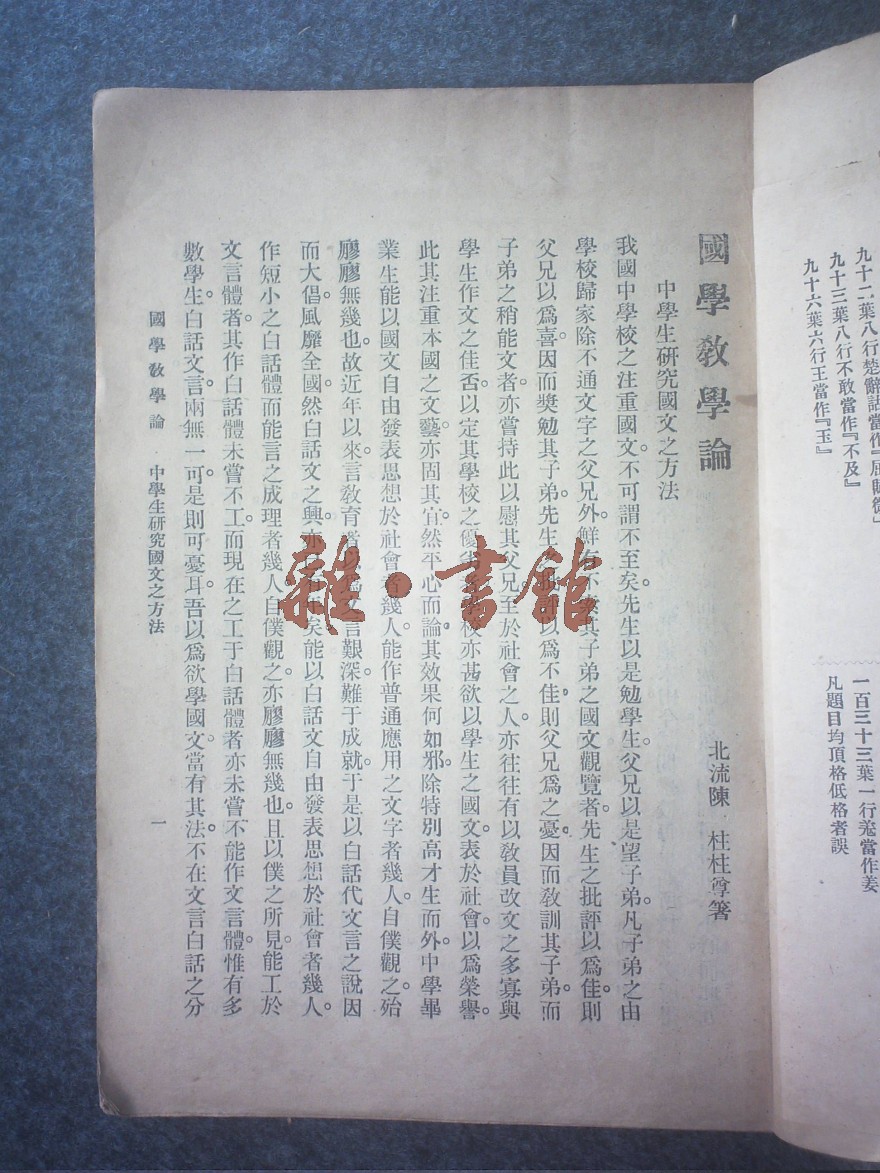 九十三葉八行不敢當作『不及』
九十六葉六行王當作『玉』
一百三十三葉一行羗當作姜
凡題目均頂格低格者誤
國學教學論
北流陳 柱柱尊箸
中學生研究國文之方法
我國中學校之注重國文。不可謂不至矣。先生以是勉學生。父兄以是望子弟。凡子弟之由
學校歸家除不通文字之父兄外。鮮有不 其子弟之國文觀覽者。先生之批評以爲佳。則
父兄以爲喜。因而獎勉其子弟。先生之 以爲不佳。則父兄爲之憂。因而教訓其子弟。而
子弟之稍能文者。亦嘗持此以慰其父兄。至於社會之人。亦往往有以教員改文之多寡與
學生作文之佳否。以定其學校之優 校亦甚欲以學生之國文。表於社會。以爲榮譽。
此其注重本國之文藝。亦固其宜。然平心而論。其效果何如邪。除特別高才生而外。中學畢
業生能以國文自由發表思想於社會者幾人。能作普通應用之文字者幾人。自僕觀之。殆
廖廖無幾也。故近年以來。言教育者 文言艱深。難于成就。于是以白話代文言之說因
而大倡。風靡全國。然白話文之興。亦 矣。能以白話文自由發表思想於社會者幾人。
作短小之白話體而能言之成理者幾人。自僕觀之。亦廖廖無幾也。且以僕之所見。能工於
文言體者。其作白話體未嘗不工。而現在之工于白話體者。亦未嘗不能作文言體。惟有多
數學生。白話文言。兩無一可。是則可憂耳。吾以爲欲學國文。當有其法。不在文言白話之分
國學教學論 · 中學生研究國文之方法
一
雜·書館